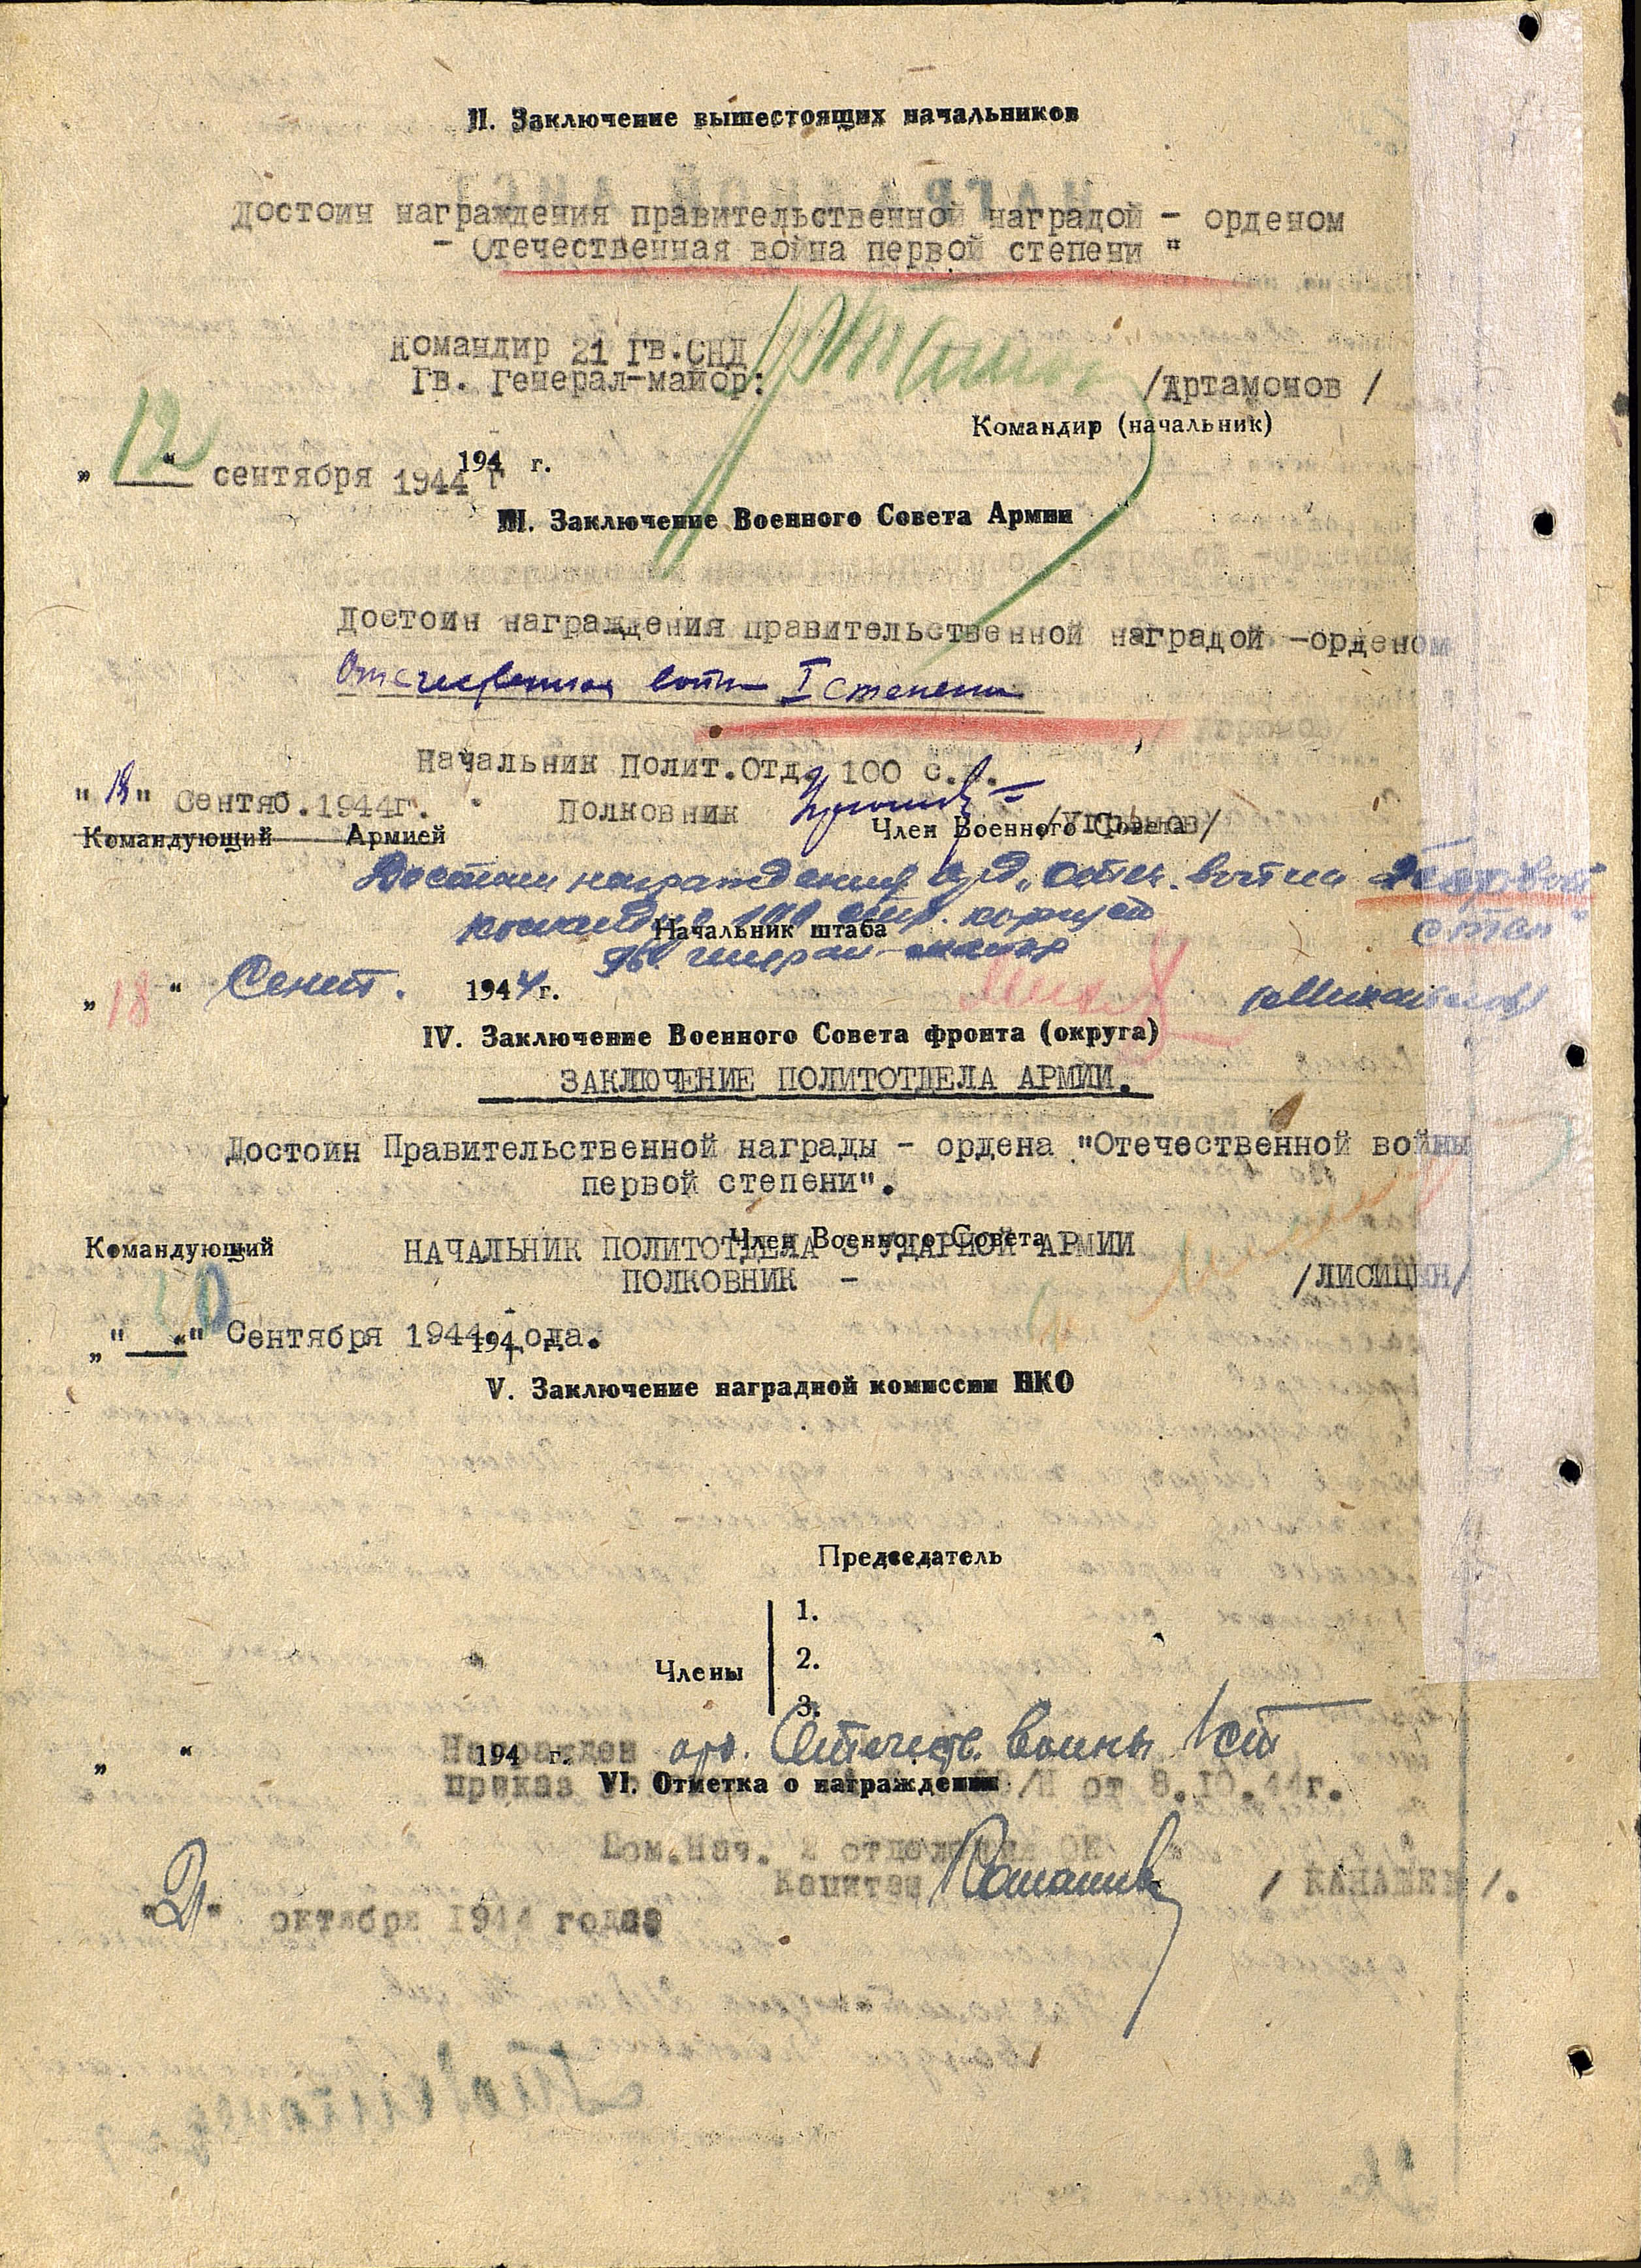 II. Заключение вышестоящих начальников
Достоин награждения правительственной наградой - орденом
- Отечественная война первой степени "
Командир 21 Гв.СКД
Гв. Генерал-майор: /Артамонов /
Командир (начальник)
„ 12 " сентября 1944 г 194 г.
III. Заключение Военного Совета Армии
Достоин награждения правительственной наградой -орденом
Отечественная война I степени
Начальник Полит.Отд. 100 с.к.
" " Сентяб.1944г. Полковник
Командующий Армией Член Военного Совета
Достоин награждения орд. „Отеч. война первой
степ"
командир 100 стр. корпуса
Начальник штаба
гв. генерал-майор
„ 18 " Сент. 1944 г. (Микайлов)
IV. Заключение Военного Совета фронта (округа)
ЗАКЛЮЧЕНИЕ ПОЛИТОТДЕЛА АРМИИ.
Достоин Правительственной награды - ордена "Отечественной войны
первой степени".
Командующий Член Военного Совета
НАЧАЛЬНИК ПОЛИТОТДЕЛА 3 УДАРНОЙ АРМИИ
ПОЛКОВНИК - /ЛИСИЦЫН/
" 20 " Сентября 1944 года. 194 г.
V. Заключение наградной комиссии НКО
Председатель
1.
Члены 2.
3.
Награжден орд. Отечеств. Войны 1 ст
„ " 194 г.
VI. Отметка о награждении
приказ /Н от 8.10.44г.
Пом.Нач. 2 отделения ОК
Капитан / КАНАШКИН /.
"21" октября 1944 года